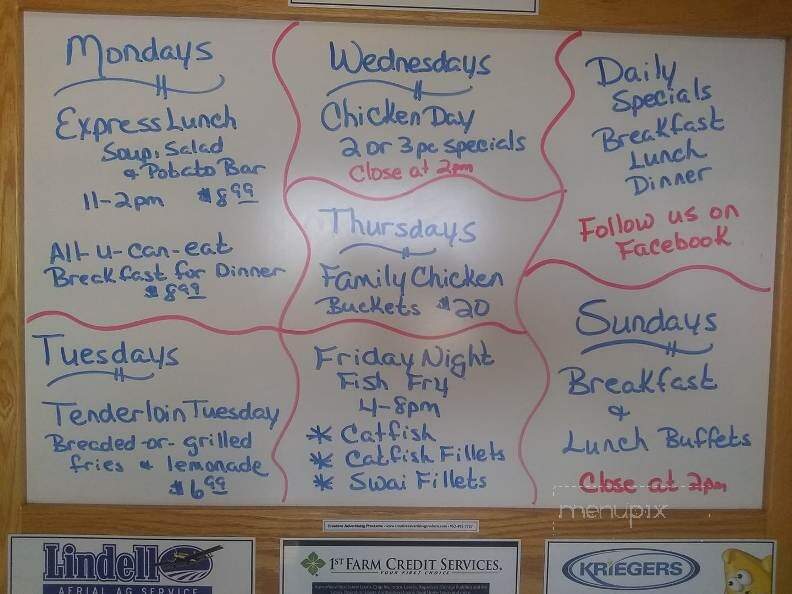 Mondays
Express Lunch
Soup, Salad
& Pobato Bar
11-2pm $8.99
All-u-can-eat
Breakfast for Dinner
$8.99
Tuesdays
Tenderloin Tuesday
Breaded-or-grilled
fries & lemonade
$6.99
Wednesdays
Chicken Day
2 or 3 pc specials
Close at 2pm
Thursdays
Family Chicken
Buckets $20
Friday Night
Fish Fry
4-8pm
* Catfish
* Catfish Fillets
* Swai Fillets
Daily
Specials
Breakfast
Lunch
Dinner
Follow us on
Facebook
Sundays
Breakfast
&
Lunch Buffets
Close at 2pm
menupix
Lindell
AERIAL AG SERVICE
1ST FARM CREDIT SERVICES.
YOUR FIRST CHOICE
KRIEGERS